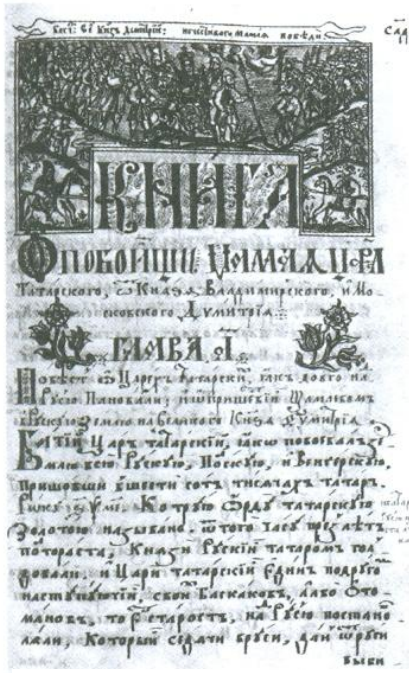 Кн҃зь Димитрїи: нечестиваго Мамая победи:
КНИГА
Ѡ ПОБОИЩИ МАМАЯ ЦРѦ
Татарского, ѿ Князя Владимирского, и Мо
сковского Димитрїя:
ГЛАВА А҃
Повѣсть ѡ Царех Татарских, якъ долго на
Русию Пановали; и ѡ пришествїи Мамаевом
в Рускую Землю на великого Князя Димитрїя
Батїй Царъ татарский, якъ повоевалъ зе
млю всю Рускую, Полскую, и Венгерскую,
пришовши в шести сотъ тисячах татар.
Року Которую Орду татарскую
Золотою називано. ѿ того часу презъ лѣтъ
полтораста, Князи Рускии татаром гол
довали; и Цари татарский Единъ подруго
наступуючїй, свои Баскаковъ, албо Ото
мановъ, то Естъ старостъ, на Русию постано
вляли, Который седячи вруси, дан ѿ Руси
выби